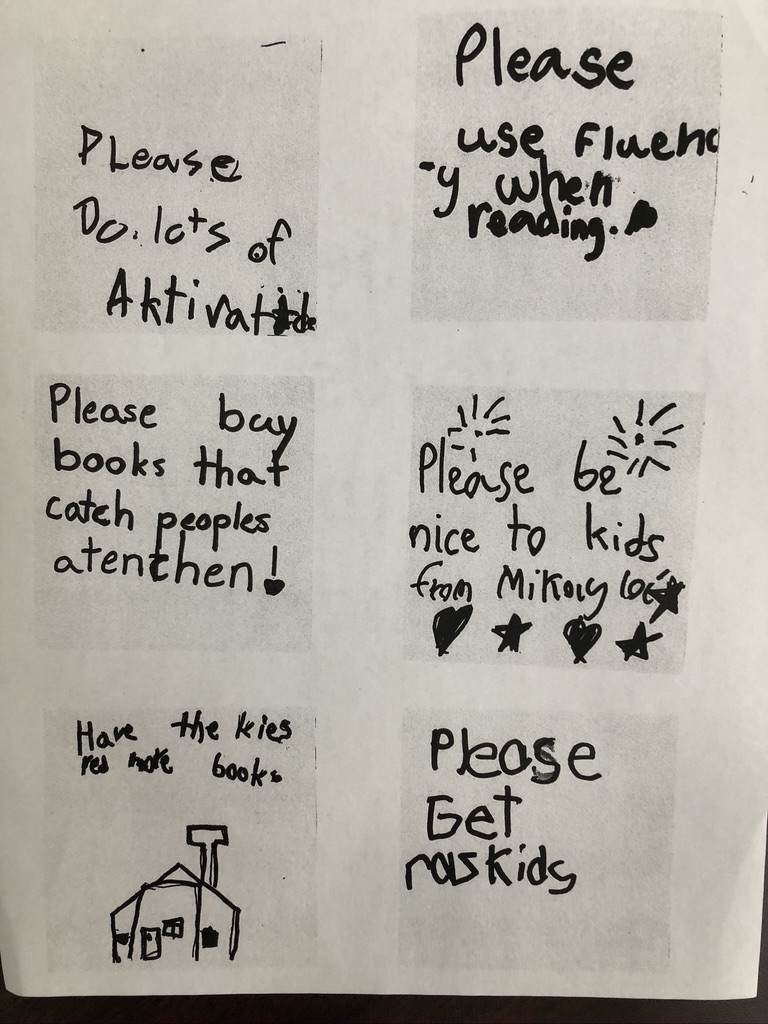 Please
Do. lots of
Please
use Fluenc
-y when
reading.
Please buy
books that
catch peoples
atenthen!
Please be
nice to kids
from
Have the kies
red more books
Please
Get
kids